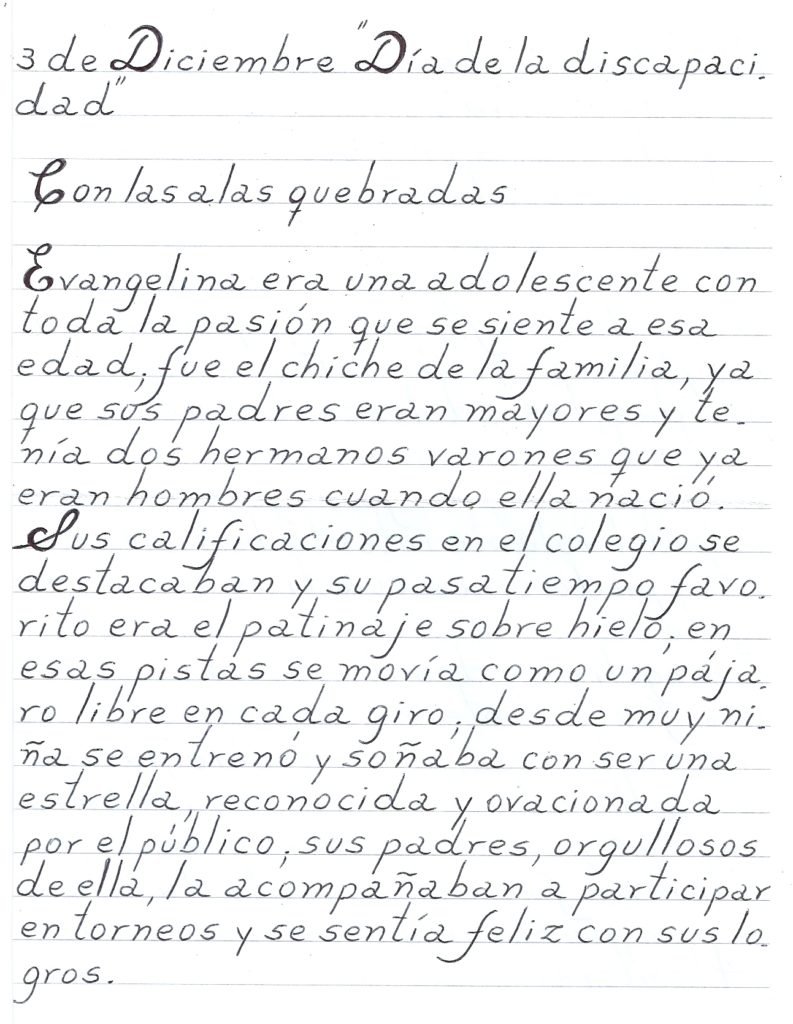 3 de Diciembre "Día de la discapaci-
dad"
Con las alas quebradas
Evangelina era una adolescente con
toda la pasión que se siente a esa
edad; fue el chiche de la familia, ya
que sus padres eran mayores y te-
nía dos hermanos varones que ya
eran hombres cuando ella nació.
Sus calificaciones en el colegio se
destacaban y su pasatiempo favo-
rito era el patinaje sobre hielo; en
esas pistas se movía como un pája-
ro libre en cada giro; desde muy ni-
ña se entrenó y soñaba con ser una
estrella, reconocida y ovacionada
por el público; sus padres, orgullosos
de ella, la acompañaban a participar
en torneos y se sentía feliz con sus lo-
gros.